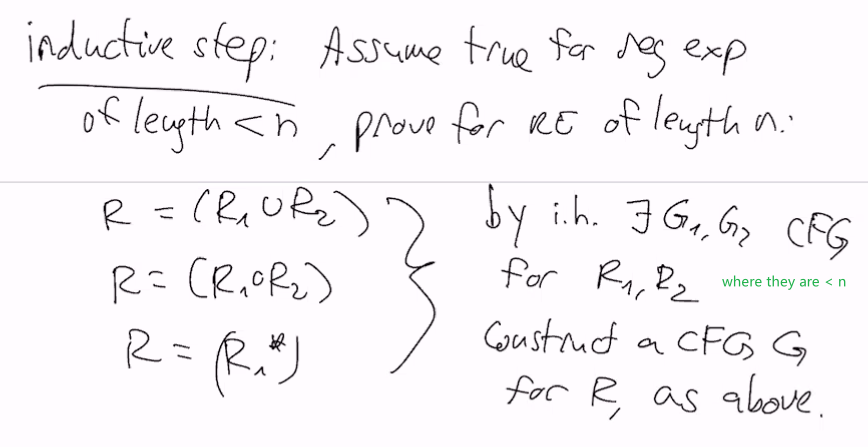 inductive step: Assume true for reg exp
of length < n, prove for RE of length n.
R = (R₁ ∪ R₂)
R = (R₁ ∘ R₂)
R = (R₁*)
by i.h. ∃ G₁, G₂ CFG
for R₁, R₂ where they are < n
Construct a CFG G
for R, as above.